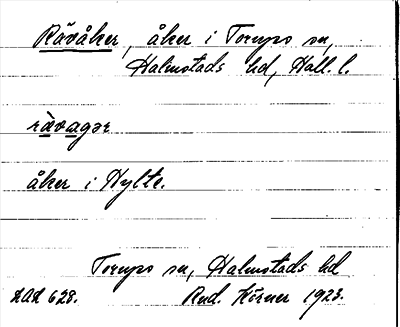 Rävåker, åker i Torups sn,
Halmstads hd, Hall. l.
rävagər
åker i Hylte.
Torups sn, Halmstads hd
DAL 628. Rud. Körner 1923.